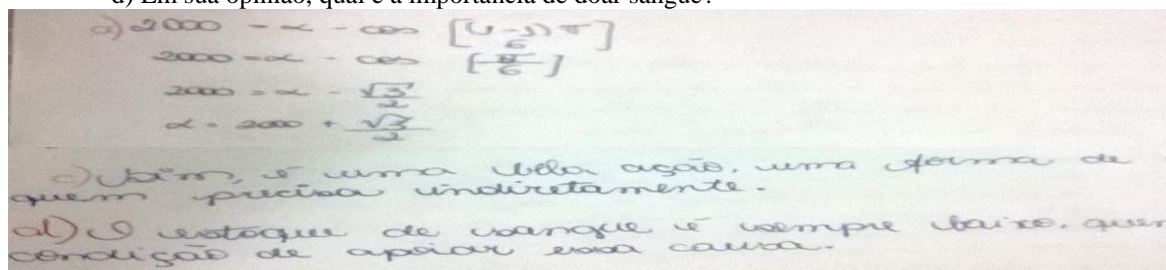 d) Em sua opinião, qual é a importância de doar sangue?
a) 2000 = α - cos [(1-)π/6]
2000 = α - cos [π/6]
2000 = α - √3/2
α = 2000 + √3/2
c) Sim, é uma bela ação, uma forma de
quem precisa indiretamente.
d) O estoque de sangue é sempre baixo, quem
condição de apoiar essa causa.